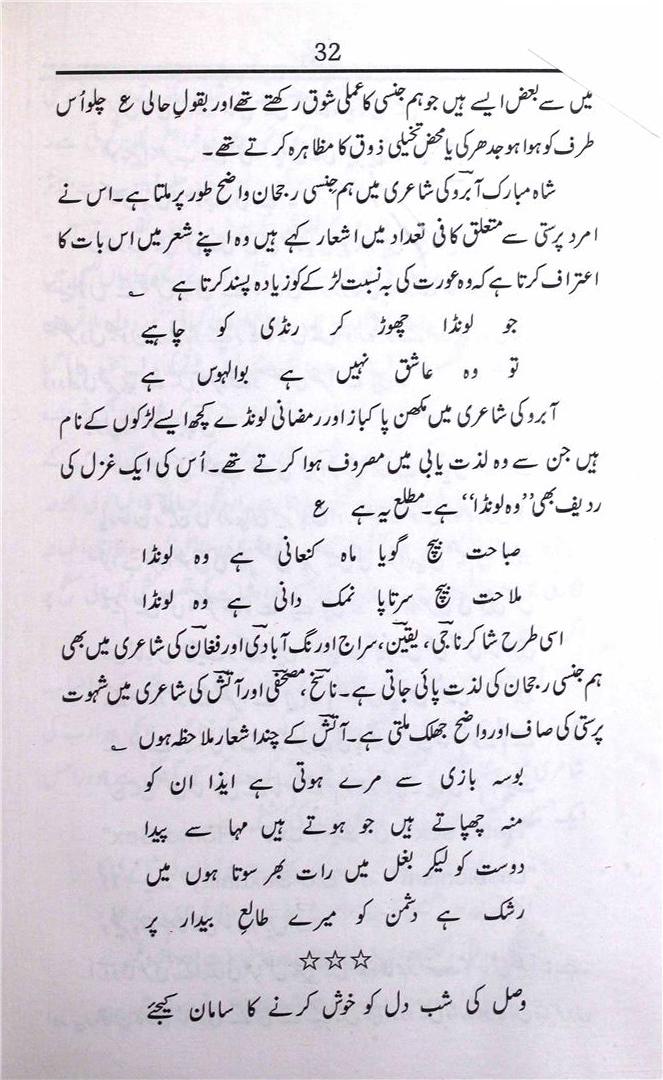 32
میں سے بعض ایسے ہیں جو ہم جنسی کا عملی شوق رکھتے تھے اور بقولِ حالی ع چلو اُس
طرف کو ہوا ہو جدھر کی یا محض تخیلی ذوق کا مظاہرہ کرتے تھے۔
شاہ مبارک آبرو کی شاعری میں ہم جنسی رجحان واضح طور پر ملتا ہے۔ اس نے
امرد پرستی سے متعلق کافی تعداد میں اشعار کہے ہیں وہ اپنے شعر میں اس بات کا
اعتراف کرتا ہے کہ وہ عورت کی بہ نسبت لڑکے کو زیادہ پسند کرتا ہے ؎
جو لونڈا چھوڑ کر رنڈی کو چاہیے
تو وہ عاشق نہیں ہے بوالہوس ہے
آبرو کی شاعری میں مکھن پاکباز اور رمضانی لونڈے کچھ ایسے لڑکوں کے نام
ہیں جن سے وہ لذت یابی میں مصروف ہوا کرتے تھے۔ اُس کی ایک غزل کی
ردیف بھی ”وہ لونڈا“ ہے۔ مطلع یہ ہے ع
صباحت بیچ گویا ماہ کنعانی ہے وہ لونڈا
ملاحت بیچ سرتاپا نمک دانی ہے وہ لونڈا
اسی طرح شاکر ناجی، یقین، سراج اورنگ آبادی اور فغان کی شاعری میں بھی
ہم جنسی رجحان کی لذت پائی جاتی ہے۔ ناسخ، مصحفی اور آتش کی شاعری میں شہوت
پرستی کی صاف اور واضح جھلک ملتی ہے۔ آتش کے چند اشعار ملاحظہ ہوں ؎
بوسہ بازی سے مرے ہوتی ہے ایذا ان کو
منہ چھپاتے ہیں جو ہوتے ہیں مہا سے پیدا
دوست کو لیکر بغل میں رات بھر سوتا ہوں میں
رشک ہے دشمن کو میرے طالعِ بیدار پر
☆☆☆
وصل کی شب دل کو خوش کرنے کا سامان کیجئے